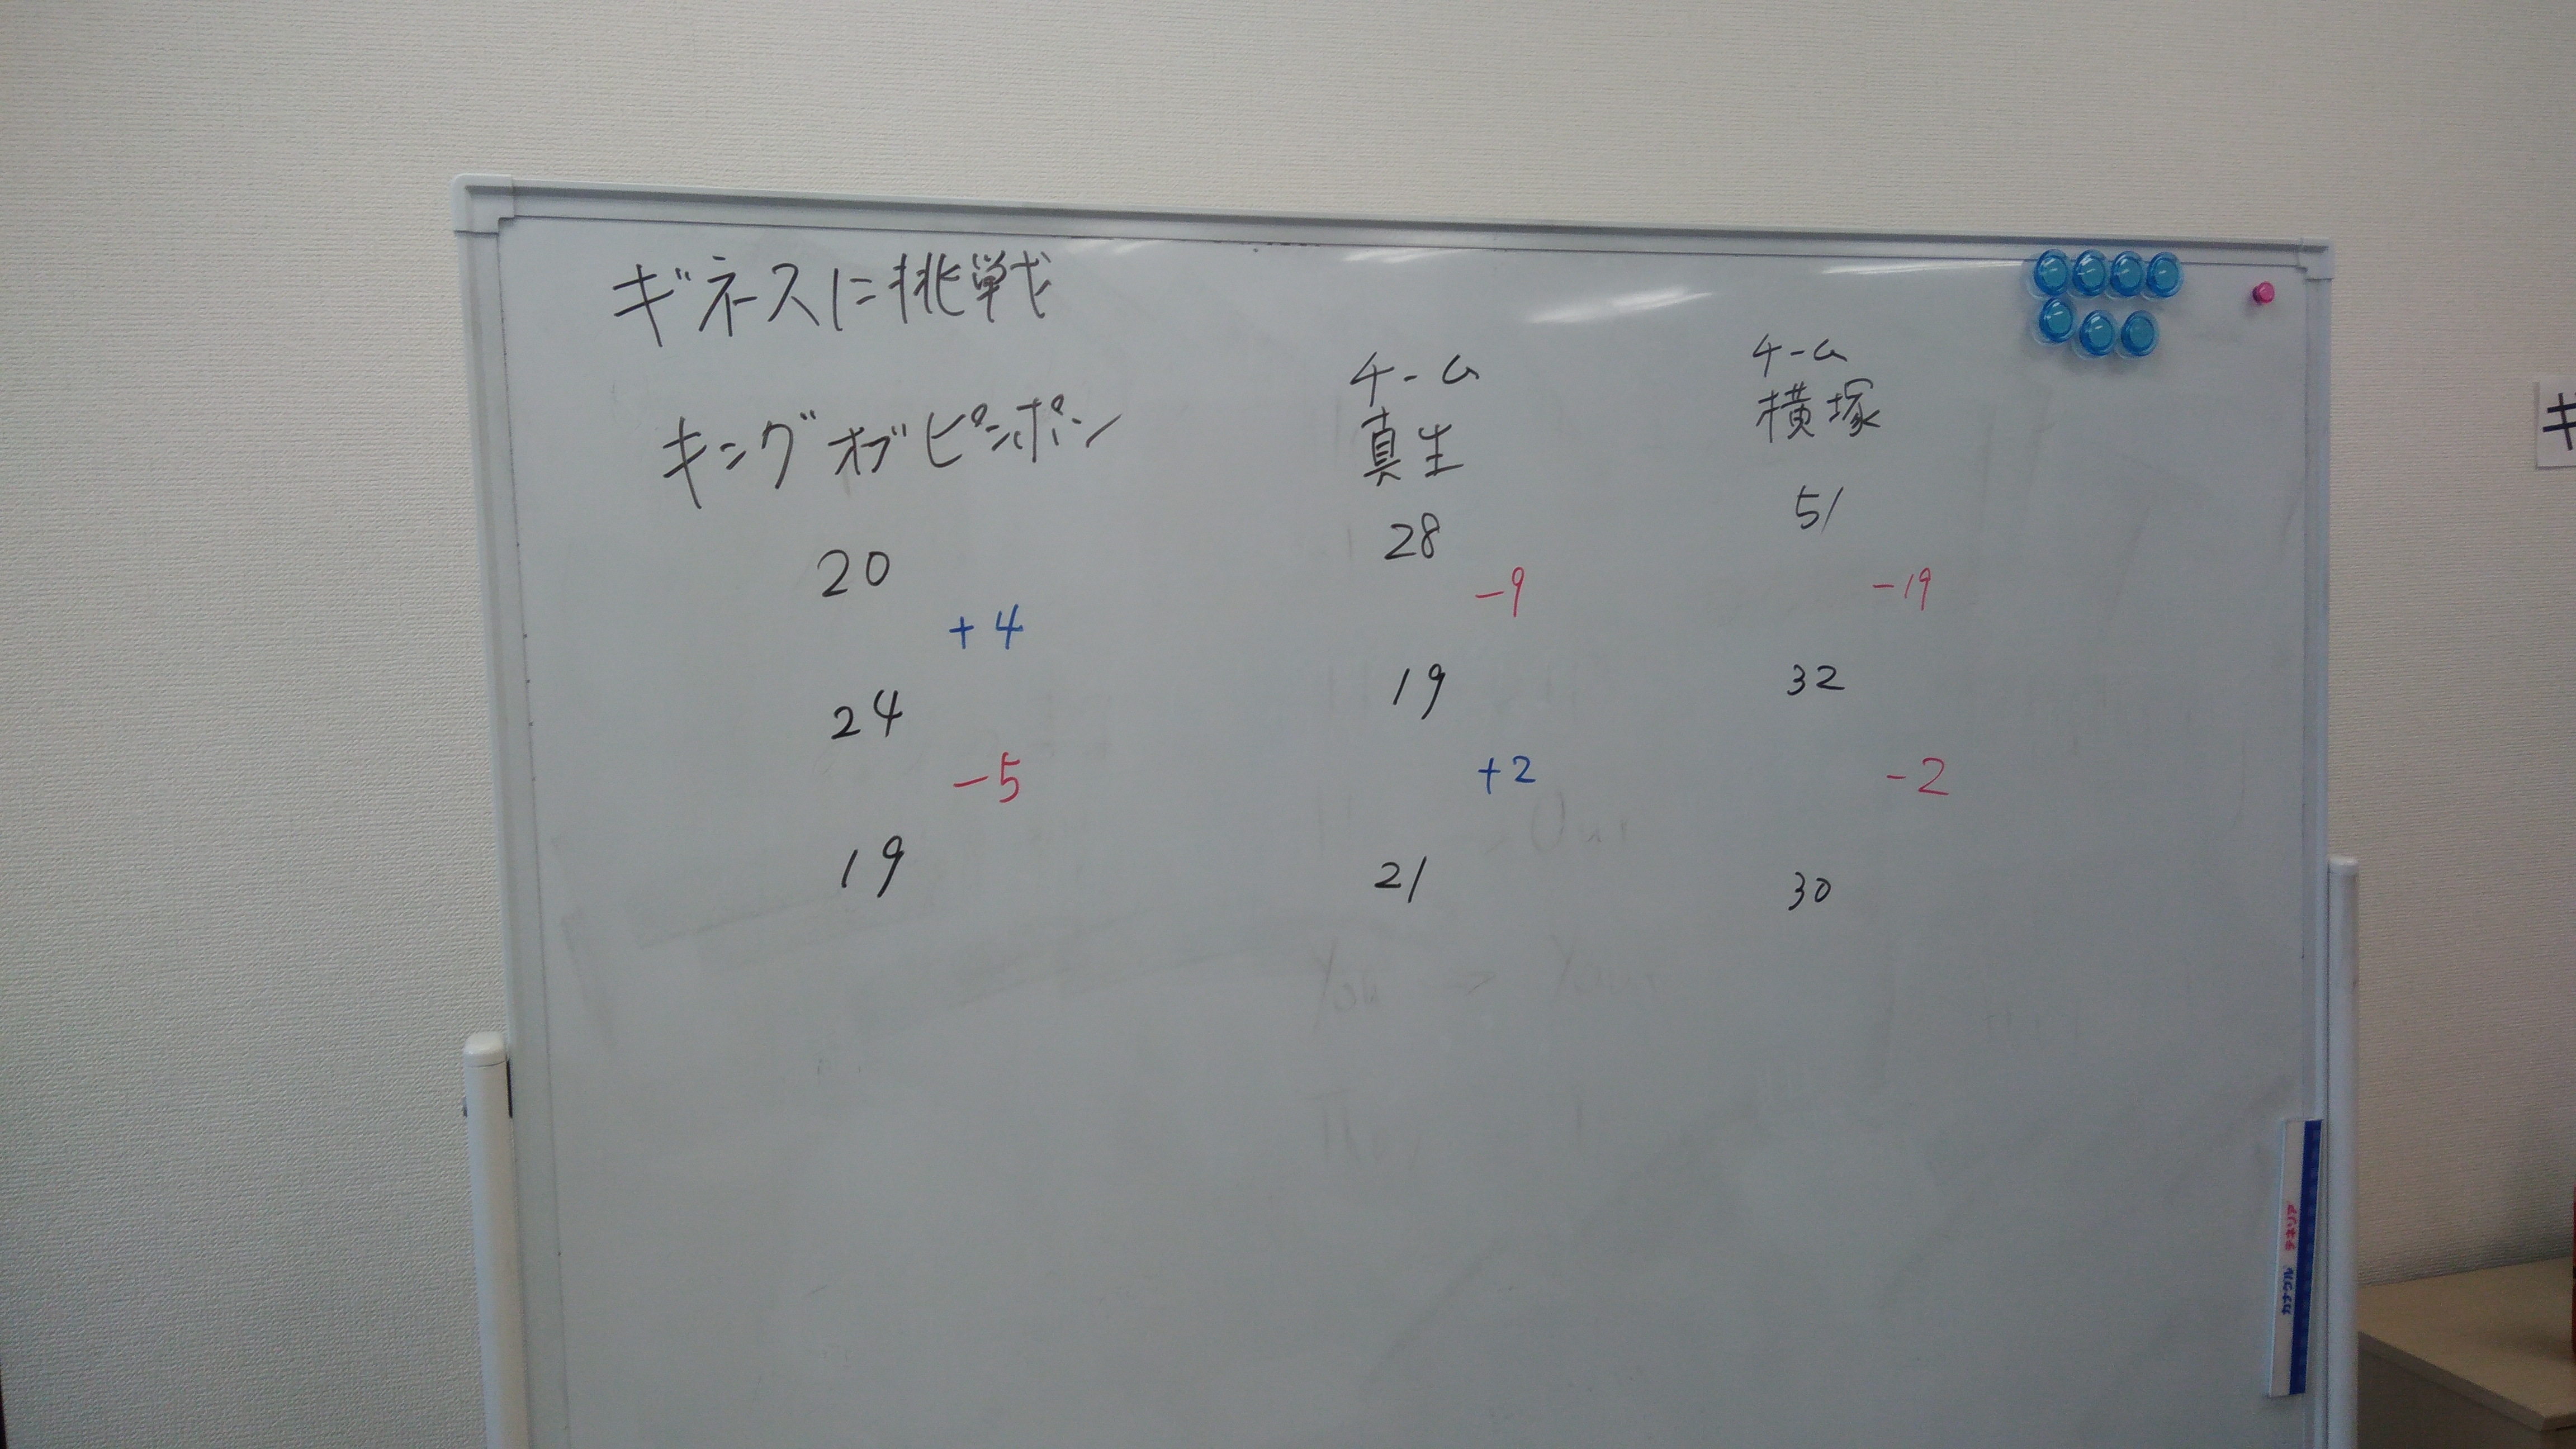 ギネスに挑戦
キングオブピンポン
20
+4
24
-5
19
チーム
真生
28
-9
19
+2
21
チーム
横塚
51
-19
32
-2
30
キ